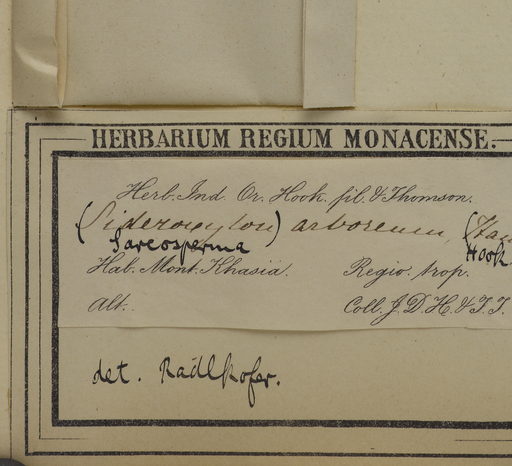 HERBARIUM REGIUM MONACENSE.
Herb. Ind. Or. Hook. fil. & Thomson.
(Sideroxylon) arboreum, (Ham
Sarcosperma Hook.
Hab. Mont. Khasia. Regio. trop.
Alt: Coll. J. D. H. & T. T.
det. Radlkofer.